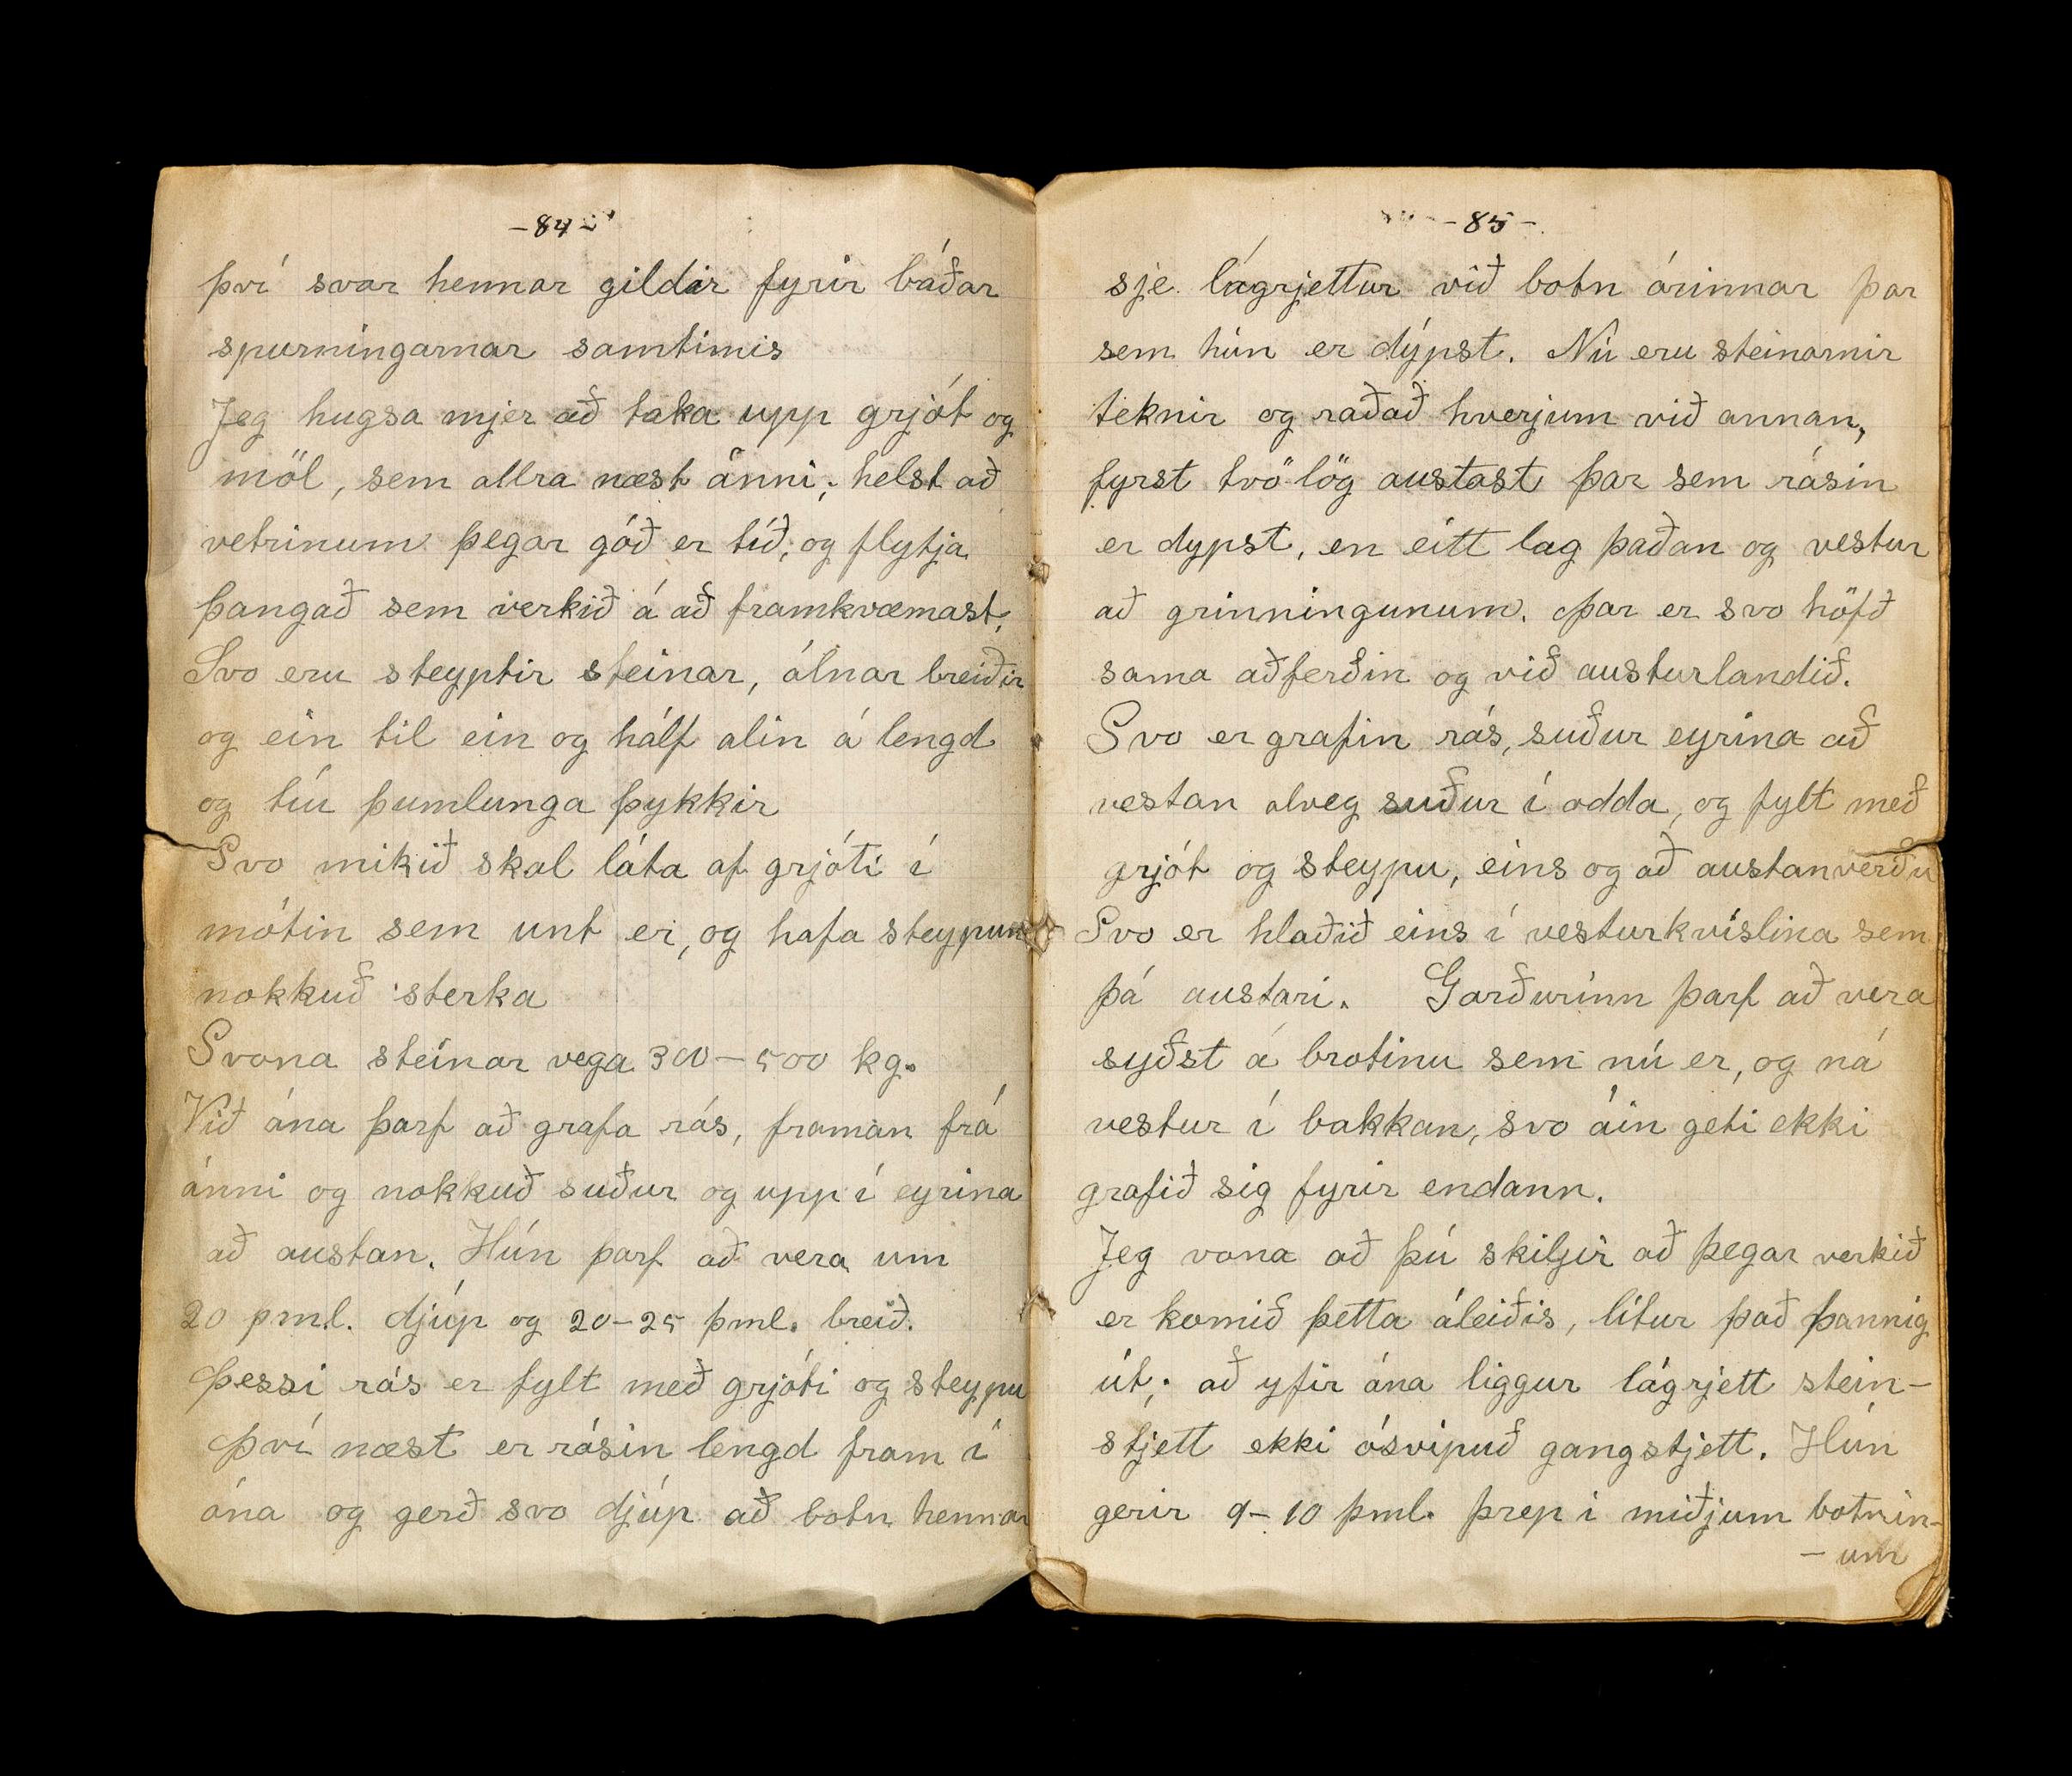 -84-
því svar hennar gildir fyrir báðar
spurningarnar samtimis
Jeg hugsa mjer að taka upp grjót og
möl, sem allra næst ánni; helst að
vetrinum þegar góð er tíð; og flytja
þangað sem verkið á að framkvæmast.
Svo eru steyptir steinar, álnar breiðir
og ein til ein og hálf alin á lengd
og tíu þumlunga þykkir
Svo mikið skal láta af grjóti í
mótin sem unt er, og hafa steypuna
nokkuð sterka
Svona steinar vega 300-500 kg.
Við ána þarf að grafa rás, framan frá
ánni og nokkuð suður og upp í eyrina
að austan. Hún þarf að vera um
20 þml. djúp og 20-25 þml. breið.
Þessi rás er fylt með grjóti og steypu
Því næst er rásin lengd fram í
ána og gerð svo djúp að botn hennar
-85-
sje lágrjettur við botn árinnar þar
sem hún er dýpst. Nú eru steinarnir
teknir og raðað hverjum við annan,
fyrst tvö lög austast þar sem rásin
er dypst, en eitt lag þaðan og vestur
að grinningunum. Þar er svo höfð
sama aðferðin og við austurlandið.
Svo er grafin rás, suður eyrina að
vestan alveg suður í odda, og fylt með
grjót og steypu, eins og að austanverðu
Svo er hlaðið eins í vesturkvíslina sem
þá austari. Garðurinn þarf að vera
syðst á brotinu sem nú er, og ná
vestur í bakkan, svo áin geti ekki
grafið sig fyrir endann.
Jeg vona að þú skiljir að þegar verkið
er komið þetta áleiðis, lítur það þannig
út; að yfir ána liggur lágrjett stein-
stjett ekki ósvipuð gangstjett. Hún
gerir 9-10 þml. þrep í miðjum botnin-
-um